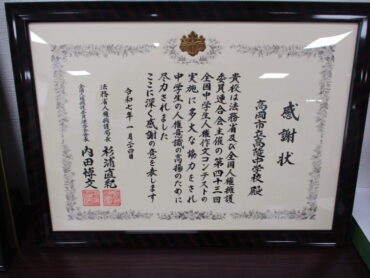 感謝状
高岡市立高陵中学校 殿
貴校は法務省及び全国人権擁護
委員連合会主催の第四十三回
全国中学生人権作文コンテストの
実施に多大な協力をされ
中学生の人権意識の高揚のために
尽力されました
ここに深く感謝の意を表します
令和七年一月二十四日
法務省人権擁護局長 杉浦直紀
全国人権擁護委員連合会長 内田博文